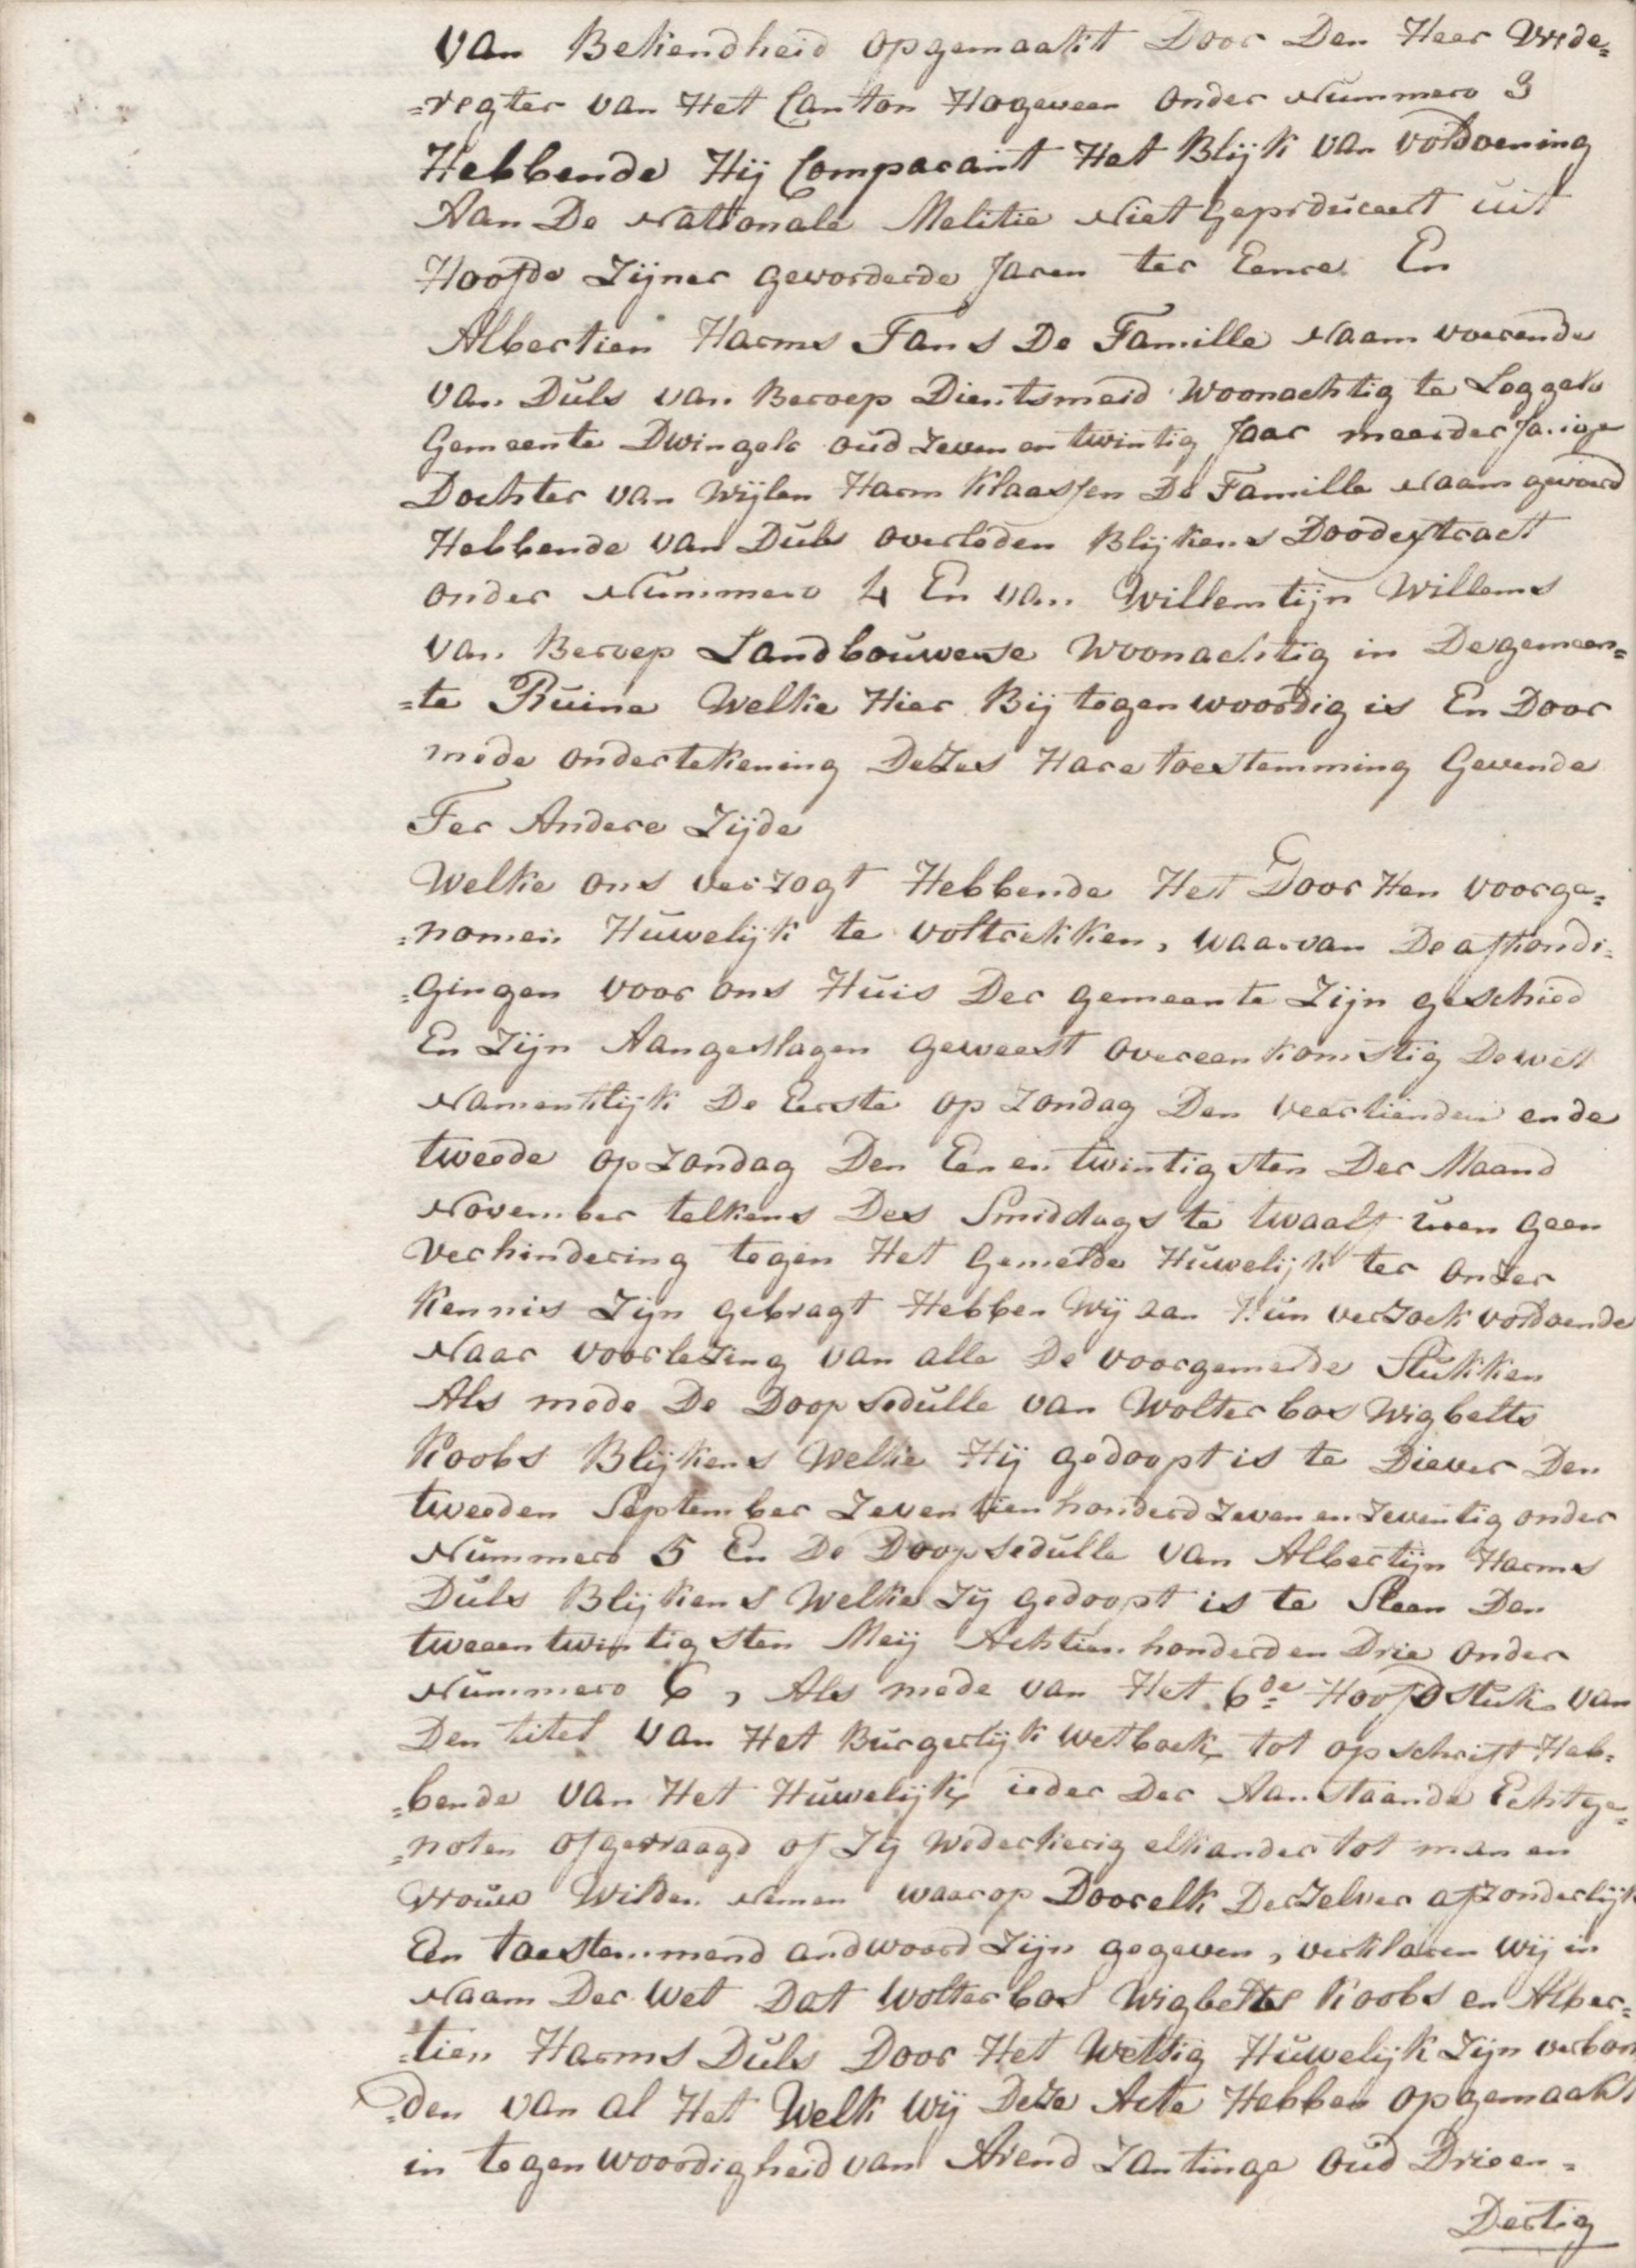 van Bekendheid opgemaakt Door Den Heer Vrede=
=regter van Het Canton Hogeveen onder Nummero 3
Hebbende Hij Comparant Het Blijk van voldoening
Aan De Nationale Melitie Niet Geproduceert uit
Hoofde Zijner gevorderde Jaren ter Eenre En
Albertien Harms Tans De Famille Naam voerende
van Duls van Beroep Dientsmeid Woonachtig te Loggelo
Gemeente Dwingelo oud Zeven en twintig Jaar meerder Jarige
Dochter van Wijlen Harm Klaassen De Famille Naam gevoerd
Hebbende van Duls overleden Blijkens Doodextract
onder Nummero 4 En van Willemtijn Willems
van Beroep Landbouwerse Woonachtig in De gemeen=
=te Ruine Welke Hier Bij tegenwoordig is En Door
mede ondertekening Dezes Hare toestemming Gevende
Ter Andere Zijde
Welke ons verzogt Hebbende Het Door Hen voorge=
=nomen Huwelijk te voltrekken, waarvan De afkondi=
=gingen voor ons Huis Der gemeente Zijn geschied
En Zijn Aangeslagen geweest overeenkomstig De wet
Namentlijk De Eerste op Zondag Den veertienden en de
tweede op Zondag Den Een en twintigsten Der Maand
November telkens Des Smiddags te twaalf uren geen
Verhindering tegen Het Gemelde Huwelijk ter onzer
Kennis Zijn gebragt Hebben Wij aan Hun verzoek voldoende
Naar voorlezing van alle De voorgemelde Stukken
Als mede De Doop sedulle van Wolter bos Wigbelts
Koobs Blijkens Welke Hij gedoopt is te Diever Den
tweeden September Zeventien honderd Zeven en Zeventig onder
Nummero 5 En De Doop sedulle van Albertijn Harms
Duls Blijkens Welke Zij gedoopt is te Sleen Den
tweeen twintigsten Meij Achtien honderd en Drie onder
Nummero 6, Als mede van Het 6de Hoofdstuk van
Den titel van Het Burgerlijk wetboek tot opschrift Heb=
=bende van Het Huwelijk ieder Der Aanstaande Echtge=
=noten ofgevraagd of Zij wederkerig elkander tot man en
vrouw Wilden Nemen waarop Door elk Derzelver afzonderlijk
Een toestemmend andwoord Zijn gegeven, verklaren wij in
Naam Der Wet Dat Wolter bos Wigbelts Koobs en Alber=
=tien Harms Duls Door Het Wettig Huwelijk Zijn verbon
=den van al Het Welk wij Deze Acte Hebben opgemaakt
in tegenwoordigheid van Arend Zantinge oud Drieen=
Dertig